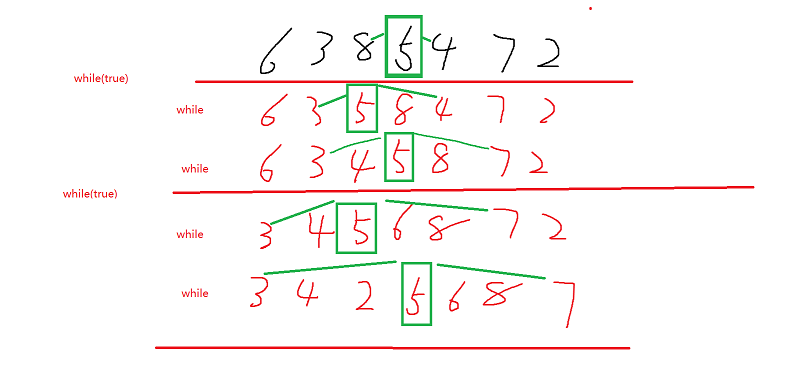 6 3 8 5 4 7 2
while(true)
while 6 3 5 8 4 7 2
while 6 3 4 5 8 7 2
while(true)
while 3 4 5 6 8 7 2
while 3 4 2 5 6 8 7